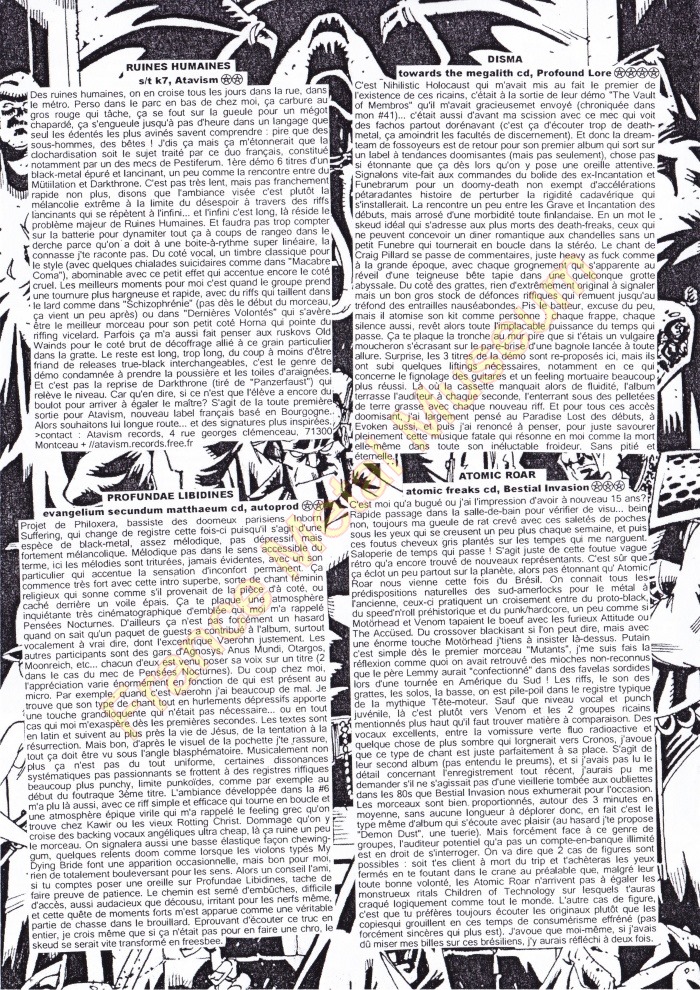 RUINES HUMAINES
s/t k7, Atavism
Des ruines humaines, on en croise tous les jours dans la rue, dans
le métro. Perso dans le parc en bas de chez moi, ça carbure au
gros rouge qui tâche, ça se fout sur la gueule pour un mégot
chapardé, ça s'engueule jusqu'à pas d'heure dans un langage que
seul les édentés les plus avinés savent comprendre : pire que des
sous-hommes, des bêtes ! J'dis ça mais ça m'étonnerait que la
clochardisation soit le sujet traité par ce duo français, constitué
notamment par un des mecs de Pestiferum. 1ère démo 6 titres d'un
black-metal épuré et lancinant, un peu comme la rencontre entre du
Mütiilation et Darkthrone. C'est pas très lent, mais pas franchement
rapide non plus, disons que l'ambiance visée c'est plutôt la
mélancolie extrême à la limite du désespoir à travers des riffs
lancinants qui se répètent à l'infini... et l'infini c'est long, là réside le
problème majeur de Ruines Humaines. Et faudra pas trop compter
sur la batterie pour dynamiter tout ça à coups de rangeo dans le
derche parce qu'on a doit à une boite-à-rythme super linéaire, la
connasse j'te raconte pas. Du coté vocal, un timbre classique pour
le style (avec quelques chialades suicidaires comme dans "Macabre
Coma"), abominable avec ce petit effet qui accentue encore le coté
cruel. Les meilleurs moments pour moi c'est quand le groupe prend
une tournure plus hargneuse et rapide, avec du riffs qui taillent dans
le lard comme dans "Schizophrénie" (pas dès le début du morceau,
ça vient un peu après) ou dans "Dernières Volontés" qui s'avère
être le meilleur morceau pour son petit coté Horna qui pointe du
riffing vicelard. Parfois ça m'a aussi fait penser aux ruskovs Old
Wainds pour le coté brut de décoffrage allié à ce grain particulier
dans la gratte. Le reste est long, trop long, du coup à moins d'être
friand de releases true-black interchangeables, c'est le genre de
démo condamnée à prendre la poussière et les toiles d'araignées.
Et c'est pas la reprise de Darkthrone (tiré de "Panzerfaust") qui
relève le niveau. Car qu'en dire, si ce n'est que l'élève a encore du
boulot pour arriver à égaler le maître? S'agit de la toute première
sortie pour Atavism, nouveau label français basé en Bourgogne..
Alors souhaitons lui longue route... et des signatures plus inspirées.
>contact : Atavism records, 4 rue georges clémenceau, 71300
Montceau + //atavism.records.free.fr
PROFUNDAE LIBIDINES
evangelium secundum matthaeum cd, autoprod
Projet de Philoxera, bassiste des doomeux parisiens Inborn
Suffering, qui change de registre cette fois-ci puisqu'il s'agit d'une
espèce de black-metal, assez mélodique, pas dépressif mais
fortement mélicolique. Mélodique pas dans le sens accessible du
terme, ici les mélodies sont triturées, jamais évidentes, avec un son
particulier qui accentue la sensation d'inconfort permanent. Ça
commence très fort avec cette intro superbe, sorte de chant féminin
religieux qui sonne comme s'il provenait de la pièce d'à coté, ou
caché derrière un voile épais. Ça te plaque une atmosphère
inquiétante très cinématographique d'emblée, et ça m'a rappelé
Pensées Nocturnes. D'ailleurs ça n'est pas forcément un hasard
quand on sait qu'un paquet de guests a contribué à l'album, surtout
vocalement à vrai dire, dont l'excentrique Vaerohn justement. Les
autres participants sont des gars d'Agnosys, Anus Mundi, Otargos,
Moonreich, etc... chacun d'eux est venu poser sa voix sur un titre (2
dans le cas du mec de Pensées Nocturnes). Du coup chez moi,
l'appréciation varie énormément en fonction de qui est présent au
micro. Par exemple, quand c'est Vaerohn j'ai beaucoup de mal. Je
trouve que son type de chant tout en hurlements dépressifs apporte
une touche grandiloquente qui n'était pas nécessaire... ou en tout
cas qui moi m'exaspère dès les premières secondes. Les textes sont
en latin et suivent au plus près la vie de Jésus, de la tentation à la
résurrection. Mais bon, d'après le visuel de la pochette j'te rassure,
tout ça doit être vu sous l'angle blasphématoire. Musicalement non
plus ça n'est pas du tout uniforme, certaines dissonances
systématiques pas passionnantes se frottent à des registres riffiques
beaucoup plus punchy, limite punkoïdes, comme par exemple au
début du foutraque 3ème titre. L'ambiance développée dans la #6
m'a plu là aussi, avec ce riff simple et efficace qui tourne en boucle et
une atmosphère épique virile qui m'a rappelé le feeling grec qu'on
trouve chez Kawir ou les vieux Rotting Christ. Dommage qu'on y
croise des backing vocaux angéliques ultra cheap, là ça ruine un peu
le morceau. On signalera aussi une basse élastique façon chewing-
gum, quelques relents doom comme lorsque les violons typés My
Dying Bride font une apparition occasionnelle, mais bon pour moi,
rien de totalement bouleversant pour les sens. Alors un conseil l'ami,
si tu comptes poser une oreille sur Profundae Libidines, tache de
faire preuve de patience. Le chemin est semé d'embûches, difficile
d'accès, aussi audacieux que décousu, irritant pour les nerfs même,
et cette quête de moments forts m'est apparue comme une véritable
partie de chasse dans le brouillard. Eprouvant d'écouter ce truc en
entier, je crois même que si ça n'était pas pour en faire une chro, le
skeud se serait vite transformé en freesbee.
DISMA
towards the megalith cd, Profound Lore
C'est Nihilistic Holocaust qui m'avait mis au fait le premier de
l'existence de ces ricains, c'était à la sortie de leur démo "The Vault
of Membros" qu'il m'avait gracieusement envoyé (chroniquée dans
mon #41)... c'était aussi d'avant ma scission avec ce mec qui voit
des fachos partout dorénavant (c'est ça d'écouter trop de death-
metal, ça amoindrit les facultés de discernement). Et donc la dream-
team de fossoyeurs est de retour pour son premier album qui sort sur
un label à tendances doomisantes (mais pas seulement), chose pas
si étonnante que ça dès lors qu'on y pose une oreille attentive.
Signalons vite-fait aux commandes du bolide des ex-Incantation et
Funebrarum pour un doomy-death non exempt d'accélérations
pétaradantes histoire de perturber la rigidité cadavérique qui
s'installerait. La rencontre un peu entre les Grave et Incantation des
débuts, mais arrosé d'une morbidité toute finlandaise. En un mot le
skeud idéal qui s'adresse aux plus morts des death-freaks, ceux qui
ne peuvent concevoir un diner romantique aux chandelles sans un
petit Funebre qui tournerait en boucle dans la stéréo. Le chant de
Craig Pillard se passe de commentaires, juste heavy as fuck comme
à la grande époque, avec chaque grognement qui s'apparente au
réveil d'une teigneuse bête tapie dans une quelconque grotte
abyssale. Du coté des grattes, rien d'extrêmement original à signaler
mais un bon gros stock de défonces riffiques qui remuent jusqu'au
tréfond des entrailles nauséabondes. Pis le batteur, excuse du peu,
mais il atomise son kit comme personne, et chaque frappe, chaque
silence aussi, revêt alors toute l'implacable puissance du temps qui
passe. Ça te plaque la tronche fissa par terre que si t'étais un vulgaire
moucheron s'écrasant sur le pare-brise d'une bagnole lancée à toute
allure. Surprise, les 3 titres de la démo sont re-proposés ici, mais ils
ont subi quelques liftings nécessaires, notamment en ce qui
concerne le fignolage des guitares et un feeling mortuaire beaucoup
plus réussi. Là où la cassette manquait alors de fluidité, l'album
terrasse l'auditeur à chaque seconde, l'enterrant sous des pelletées
de terre grasse avec chaque nouveau riff. Et pour tous ces accès
doomisants, j'ai largement pensé au Paradise Lost des débuts, à
Evoken ou Winter. Puis j'ai renoncé à penser, pour juste savourer
pleinement cette musique fatale qui résonne en moi comme la mort
elle-même dans toute son inéluctable froideur. Sans pitié et
éternelle !
ATOMIC ROAR
atomic freaks cd, Bestial Invasion
C'est moi qu'a bugué ou j'ai l'impression d'avoir à nouveau 15 ans?
Rapide passage dans la salle-de-bain pour vérifier de visu... ben
non, toujours ma gueule de rat crevé avec ces saletés de poches
sous les yeux qui se creusent un peu plus chaque semaine, et puis
ces foutus cheveux gris plantés sur les tempes qui me narguent.
Saloperie de temps qui passe ! S'agit juste de cette foutue vague
rétro qu'a encore trouvé de nouveaux représentants. C'est sûr que
ça éclot un peu partout sur la planète, alors pas étonnant qu' Atomic
Roar nous vienne cette fois du Brésil. On connait tous les
prédispositions naturelles des sud-amerlocks pour le métal à
l'ancienne, ceux-ci pratiquent un croisement entre du proto-black,
du speed'n'roll préhistorique et du punk/hardcore, un peu comme si
Motörhead et Venom tapaient le boeuf avec les furieux Attitude ou
The Accüsed. Du crossover blackisant si l'on peut dire, mais avec
une énorme touche Motörhead j'tiens à insister là-dessus. Putain
c'est simple dès le premier morceau "Mutants", j'me suis fais la
réflexion comme quoi on avait retrouvé des mioches non-reconnus
que le père Lemmy aurait "confectionné" dans des favelas sordides
lors d'une tournée en Amérique du Sud ! Les riffs, le son des
grattes, les solos, la basse, on est pile-poil dans le registre typique
de la mythique Tête-moteur. Sauf que niveau vocal et punch
juvénile, là c'est plutôt vers Venom et les 2 groupes ricains
mentionnés plus haut qu'il faut trouver matière à comparaison. Des
vocaux excellents, entre la vomissure verte fluo radioactive et
quelque chose de plus sombre qui lorgnerait vers Cronos, j'avoue
que ce type de chant est juste parfaitement à sa place. S'agit de
leur second album (pas entendu le preums), et si j'avais pas lu le
détail concernant l'enregistrement tout récent, j'aurais pu me
demander s'il ne s'agissait pas d'une vieillerie tombée aux oubliettes
dans les 80s que Bestial Invasion nous exhumerait pour l'occasion.
Les morceaux sont bien proportionnés, autour des 3 minutes en
moyenne, sans aucune longueur à déplorer donc, en fait c'est le
type même d'album qui s'écoute avec plaisir (au hasard j'te propose
"Demon Dust", une tuerie). Mais forcément face à ce genre de
groupes, l'auditeur potentiel qu'a pas un compte-en-banque illimité
est en droit de s'interroger. On va dire que 2 cas de figures sont
possibles : soit t'es client à mort du trip et t'achèteras les yeux
fermés en te foutant dans le crane au préalable que, malgré leur
toute bonne volonté, les Atomic Roar n'arrivent pas à égaler les
monstrueux ritals Children of Technology sur lesquels t'auras
craqué logiquement comme tout le monde. L'autre cas de figure,
c'est que tu préfères toujours écouter les originaux plutôt que les
copiesqui grouillent en ces temps de consumérisme effréné (pas
forcément sincères qui plus est). J'avoue que moi-même, si j'avais
dû miser mes billes sur ces brésiliens, j'y aurais réfléchi à deux fois.
France Metal Museum